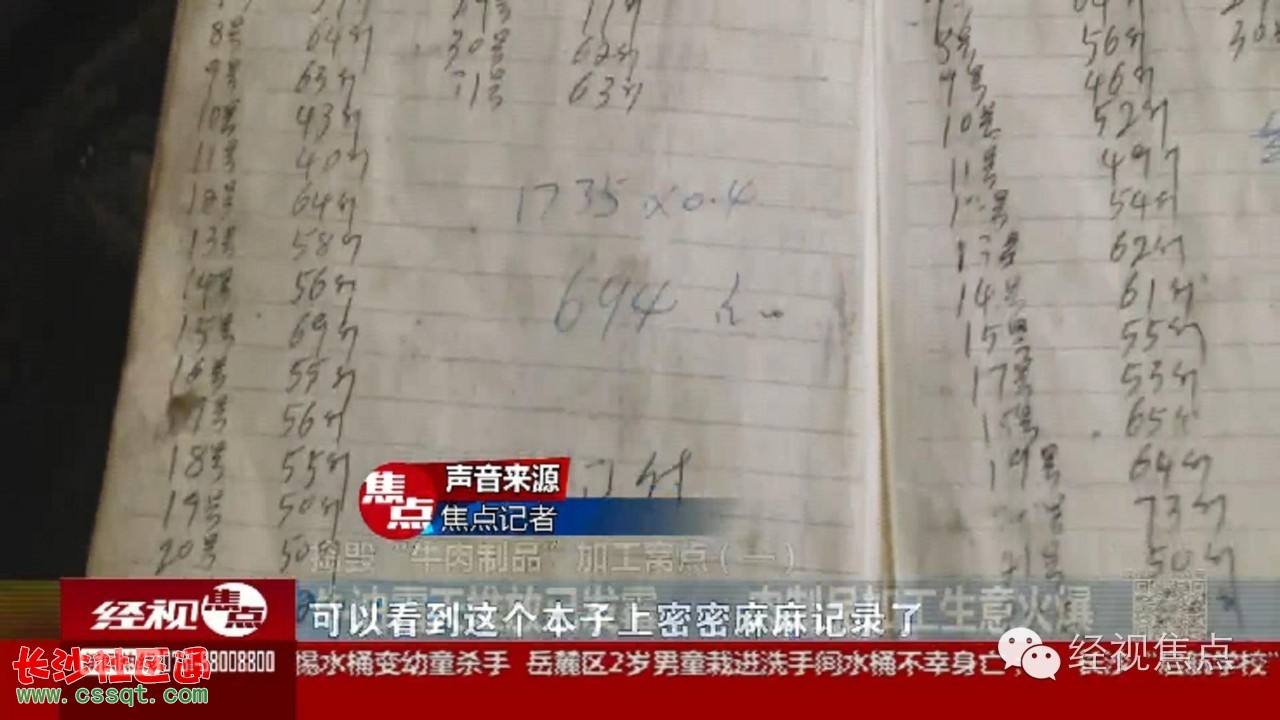 8号 64斤 30号 62斤
9号 63斤 31号 63斤
10号 43斤
11号 40斤
12号 64斤
13号 58斤
14号 56斤
15号 69斤
16号 55斤
17号 56斤
18号 55斤
19号 50斤
20号 50斤
1735×0.4
694
8号 56斤
9号 46斤
10号 52斤
11号 49斤
54斤
13号 62斤
14号 61斤
15号 55斤
17号 53斤
65斤
19号 64斤
73斤
21号 50斤
焦点
声音来源
焦点记者
捣毁“牛肉制品”加工窝点（一）
可以看到这个本子上密密麻麻记录了
经视焦点
长沙社区通
www.cssqt.com
水桶变幼童杀手 岳麓区2岁男童栽进洗手间水桶不幸身亡
经视焦点